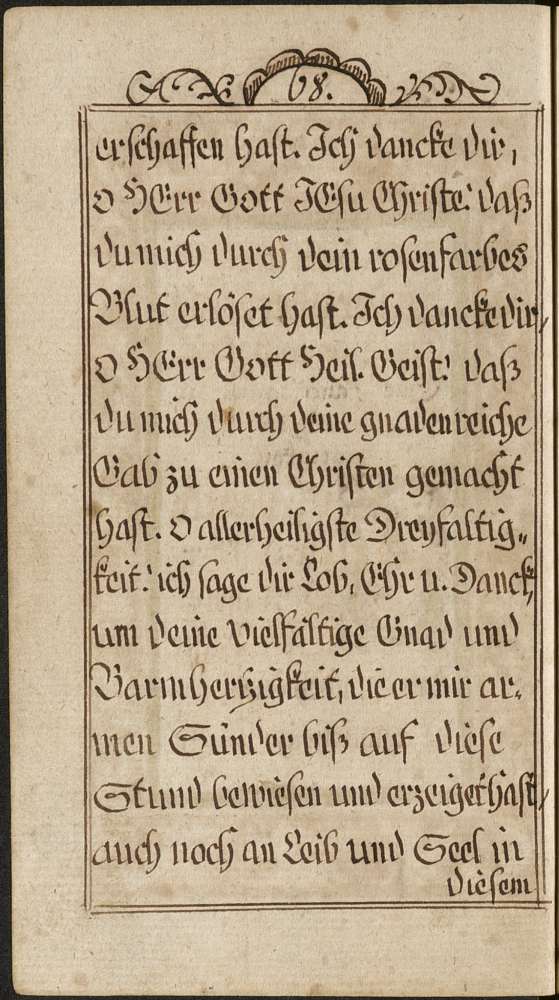 68.
erschaffen hast. Ich dancke dir,
O HErr Gott JEsu Christe! daß
du mich durch dein rosenfarbes
Blut erlöset hast. Ich dancke dir,
O HErr Gott Heil. Geist! daß
du mich durch deine gnadenreiche
Gab zu einen Christen gemacht
hast. O allerheiligste Dreyfaltig„
keit! ich sage dir Lob, Ehr u. Danck,
um deine vielfältige Gnad und
Barmhertzigkeit, die er mir ar„
men Sünder biß auf diese
Stund bewiesen und erzeiget hast,
auch noch an Leib und Seel in
diesem